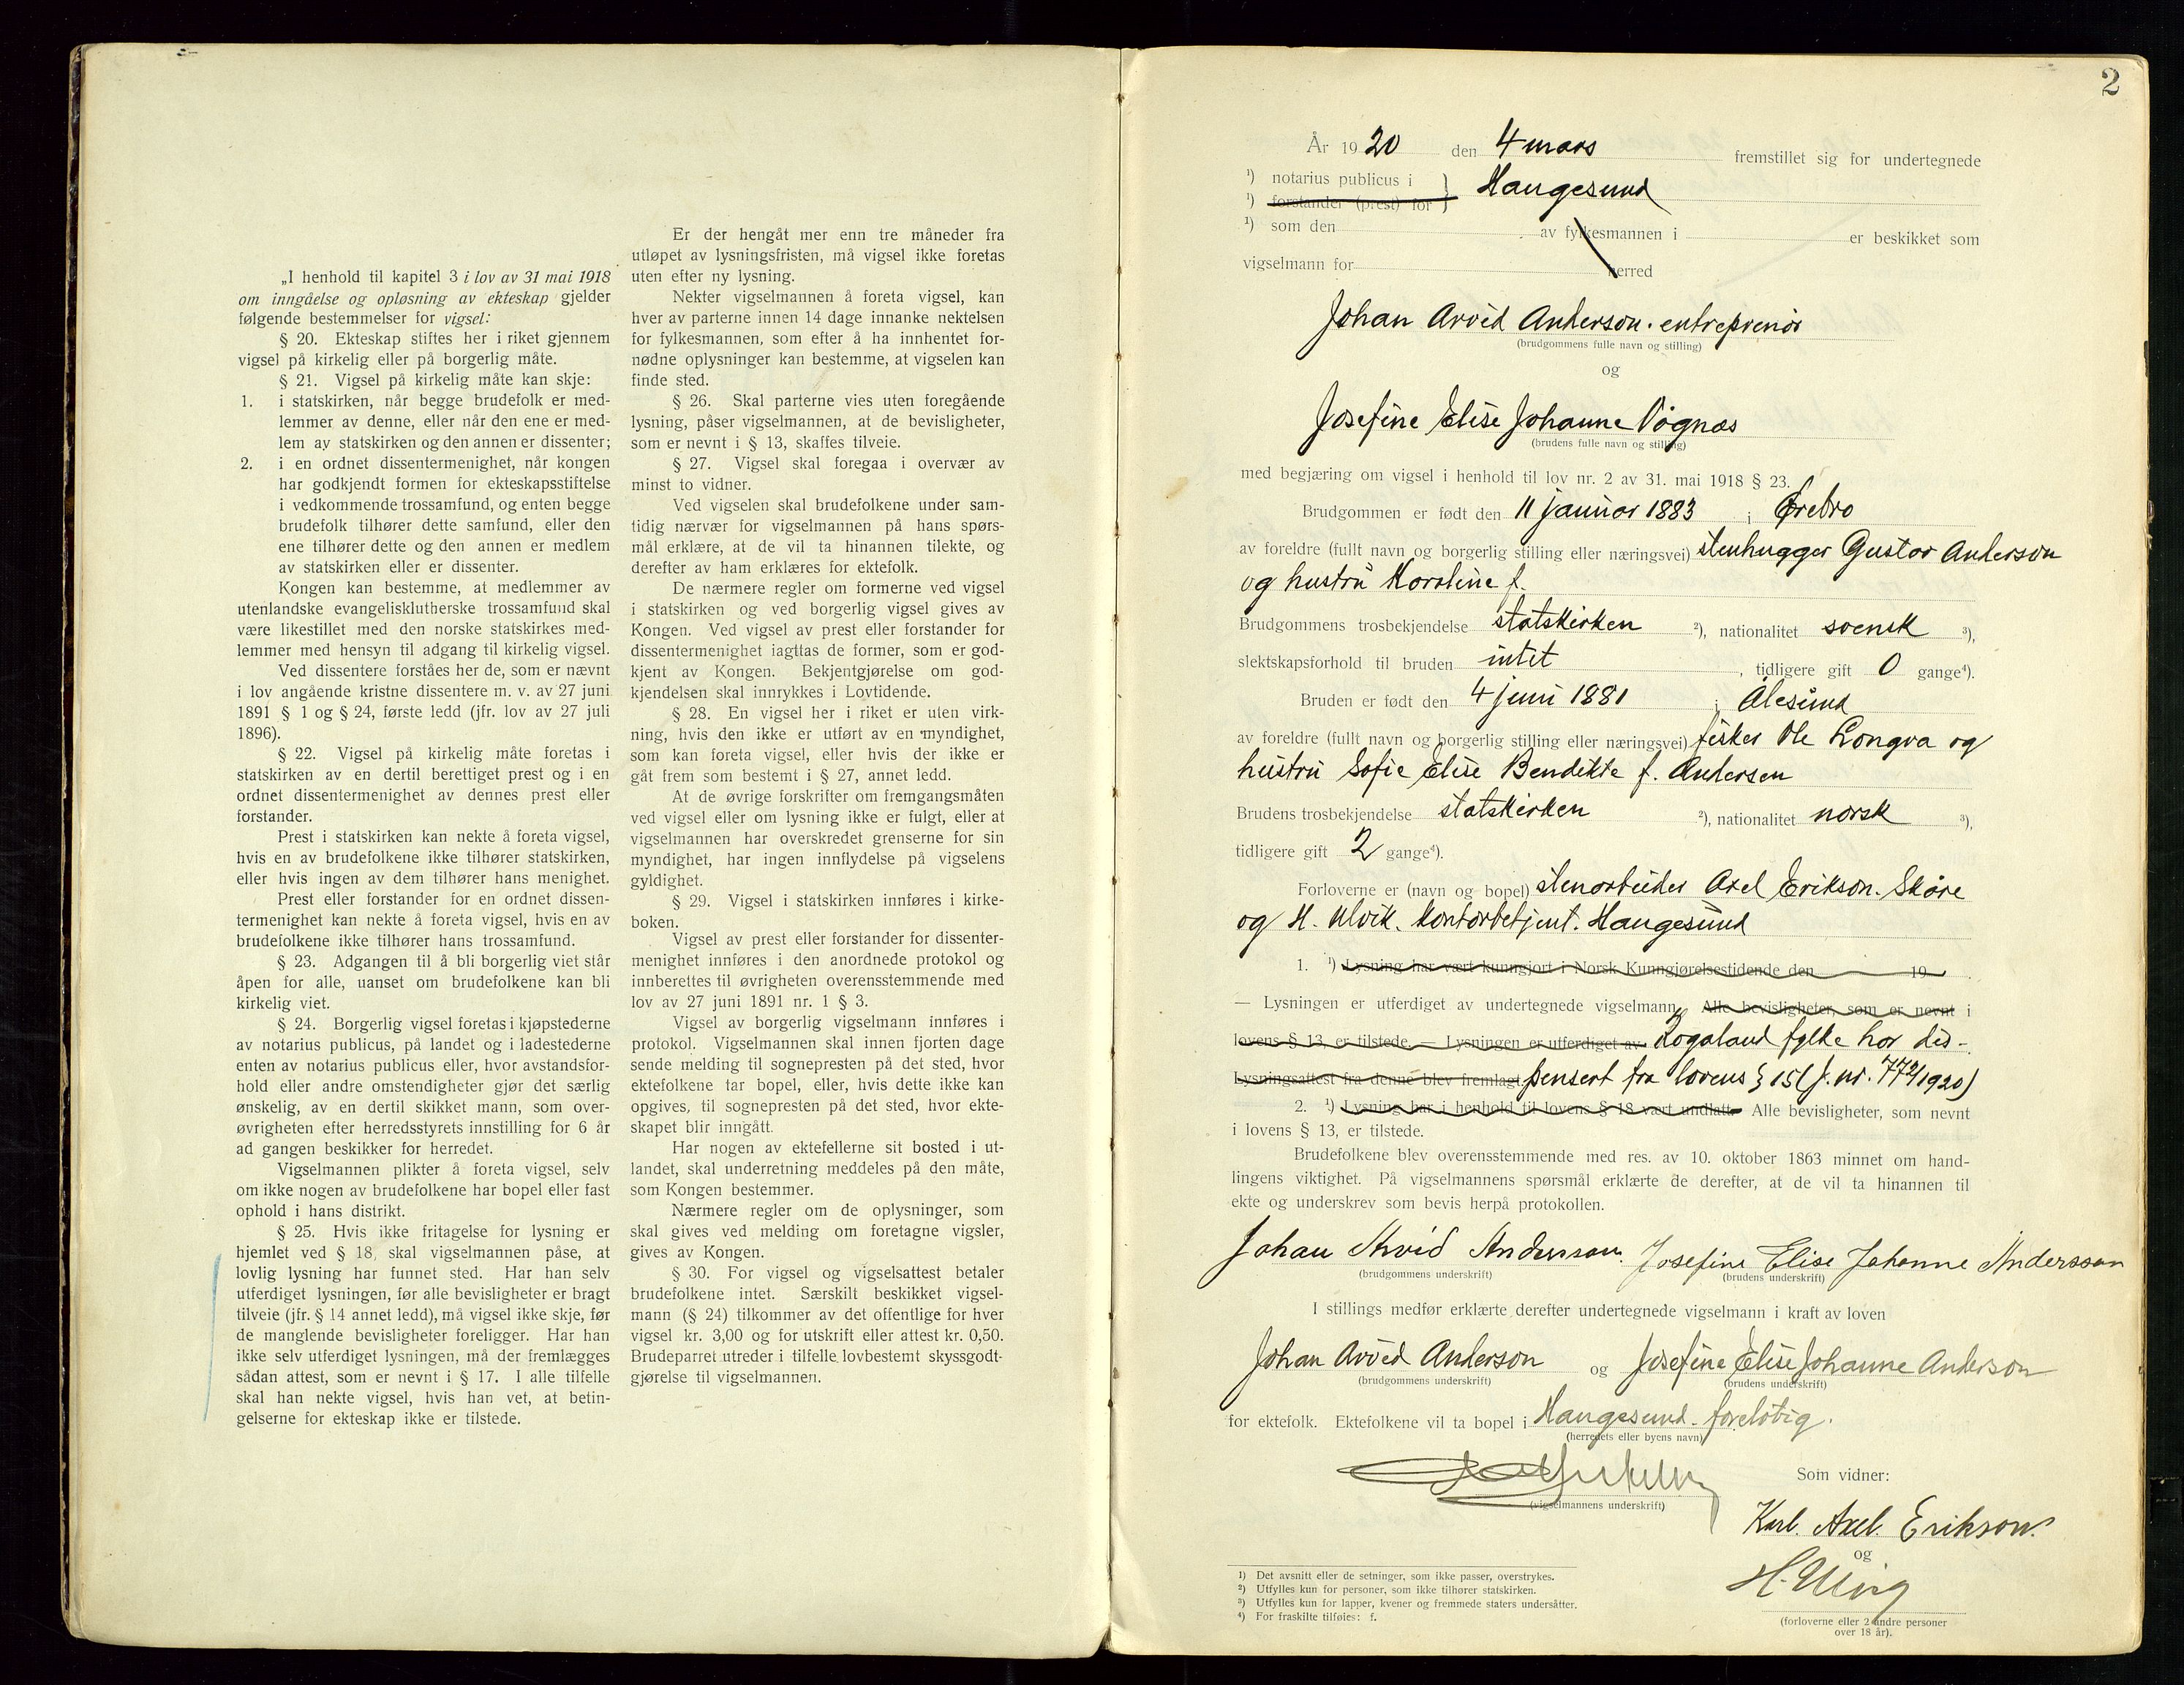 „I henhold til kapitel 3 i lov av 31 mai 1918
om inngåelse og opløsning av ekteskap gjelder
følgende bestemmelser for vigsel:
§ 20. Ekteskap stiftes her i riket gjennem
vigsel på kirkelig eller på borgerlig måte.
§ 21. Vigsel på kirkelig måte kan skje:
1. i statskirken, når begge brudefolk er med-
lemmer av denne, eller når den ene er med-
lem av statskirken og den annen er dissenter;
2. i en ordnet dissentermenighet, når kongen
har godkjendt formen for ekteskapsstiftelse
i vedkommende trossamfund, og enten begge
brudefolk tilhører dette samfund, eller den
ene tilhører dette og den annen er medlem
av statskirken eller er dissenter.
Kongen kan bestemme, at medlemmer av
utenlandske evangelisklutherske trossamfund skal
være likestillet med den norske statskirkes med-
lemmer med hensyn til adgang til kirkelig vigsel.
Ved dissentere forståes her de, som er nævnt
i lov angående kristne dissentere m. v. av 27 juni
1891 § 1 og § 24, første ledd (jfr. lov av 27 juli
1896).
§ 22. Vigsel på kirkelig måte foretas i
statskirken av en dertil berettiget prest og i en
ordnet dissentermenighet av dennes prest eller
forstander.
Prest i statskirken kan nekte å foreta vigsel,
hvis en av brudefolkene ikke tilhører statskirken,
eller hvis ingen av dem tilhører hans menighet.
Prest eller forstander for en ordnet dissen-
termenighet kan nekte å foreta vigsel, hvis en av
brudefolkene ikke tilhører hans trossamfund.
§ 23. Adgangen til å bli borgerlig viet står
åpen for alle, uanset om brudefolkene kan bli
kirkelig viet.
§ 24. Borgerlig vigsel foretas i kjøpstederne
av notarius publicus, på landet og i ladestederne
enten av notarius publicus eller, hvor avstandsfor-
hold eller andre omstendigheter gjør det særlig
ønskelig, av en dertil skikket mann, som over-
øvrigheten efter herredsstyrets innstilling for 6 år
ad gangen beskikker for herredet.
Vigselmannen plikter å foreta vigsel, selv
om ikke nogen av brudefolkene har bopel eller fast
ophold i hans distrikt.
§ 25. Hvis ikke fritagelse for lysning er
hjemlet ved § 18, skal vigselmannen påse, at
lovlig lysning har funnet sted. Har han selv
utferdiget lysningen, før alle bevisligheter er bragt
tilveie (jfr. § 14 annet ledd), må vigsel ikke skje, før
de manglende bevisligheter foreligger. Har han
ikke selv utferdiget lysningen, må der fremlægges
sådan attest, som er nevnt i § 17. I alle tilfelle
skal han nekte vigsel, hvis han vet, at betin-
gelserne for ekteskap ikke er tilstede.
Er der hengåt mer enn tre måneder fra
utløpet av lysningsfristen, må vigsel ikke foretas
uten efter ny lysning.
Nekter vigselmannen å foreta vigsel, kan
hver av parterne innen 14 dage innanke nektelsen
for fylkesmannen, som efter å ha innhentet for-
nødne oplysninger kan bestemme, at vigselen kan
finde sted.
§ 26. Skal parterne vies uten foregående
lysning, påser vigselmannen, at de bevisligheter,
som er nevnt i § 13, skaffes tilveie.
§ 27. Vigsel skal foregaa i overvær av
minst to vidner.
Ved vigselen skal brudefolkene under sam-
tidig nærvær for vigselmannen på hans spørs-
mål erklære, at de vil ta hinannen tilekte, og
derefter av ham erklæres for ektefolk.
De nærmere regler om formerne ved vigsel
i statskirken og ved borgerlig vigsel gives av
Kongen. Ved vigsel av prest eller forstander for
dissentermenighet iagttas de former, som er god-
kjent av Kongen. Bekjentgjørelse om god-
kjendelsen skal innrykkes i Lovtidende.
§ 28. En vigsel her i riket er uten virk-
ning, hvis den ikke er utført av en myndighet,
som kan foreta vigsel, eller hvis der ikke er
gåt frem som bestemt i § 27, annet ledd.
At de øvrige forskrifter om fremgangsmåten
ved vigsel eller om lysning ikke er fulgt, eller at
vigselmannen har overskredet grenserne for sin
myndighet, har ingen innflydelse på vigselens
gyldighet.
§ 29. Vigsel i statskirken innføres i kirke-
boken.
Vigsel av prest eller forstander for dissenter-
menighet innføres i den anordnede protokol og
innberettes til øvrigheten overensstemmende med
lov av 27 juni 1891 nr. 1 § 3.
Vigsel av borgerlig vigselmann innføres i
protokol. Vigselmannen skal innen fjorten dage
sende melding til sognepresten på det sted, hvor
ektefolkene tar bopel, eller, hvis dette ikke kan
opgives, til sognepresten på det sted, hvor ekte-
skapet blir inngått.
Har nogen av ektefellerne sit bosted i ut-
landet, skal underretning meddeles på den måte,
som Kongen bestemmer.
Nærmere regler om de oplysninger, som
skal gives ved melding om foretagne vigsler,
gives av Kongen.
§ 30. For vigsel og vigselsattest betaler
brudefolkene intet. Særskilt beskikket vigsel-
mann (§ 24) tilkommer av det offentlige for hver
vigsel kr. 3,00 og for utskrift eller attest kr. 0,50.
Brudeparret utreder i tilfelle lovbestemt skyssgodt-
gjørelse til vigselmannen.
2
År 1920 den 4 mars fremstillet sig for undertegnede
¹) notarius publicus i } Haugesund
¹) forstander (prest) for }
¹) som den av fylkesmannen i er beskikket som
vigselmann for herred
Johan Arvid Anderson. entreprenör
(brudgommens fulle navn og stilling)
og
Josefine Elise Johanne Vågnæs
(brudens fulle navn og stilling)
med begjæring om vigsel i henhold til lov nr. 2 av 31. mai 1918 § 23.
Brudgommen er født den 11 januar 1883 i Ørebro
av foreldre (fullt navn og borgerlig stilling eller næringsvei) stenhugger Gustav Anderson
og hustru Karoline f.
Brudgommens trosbekjendelse statskirken ²), nationalitet svensk ³),
slektskapsforhold til bruden intet, tidligere gift 0 gange⁴).
Bruden er født den 4 juni 1881 i Ålesund
av foreldre (fullt navn og borgerlig stilling eller næringsvei) fisker Ole Longva og
hustru Sofie Elise Bendikte f. Andersen
Brudens trosbekjendelse statskirken ²), nationalitet norsk ³),
tidligere gift 2 gange⁴).
Forloverne er (navn og bopel) stenarbeider Axel Erikson. Skåre
og H. Ulvik. kontorbetjent. Haugesund
1. ¹) Lysning har vært kunngjort i Norsk Kunngjørelsestidende den 19
— Lysningen er utferdiget av undertegnede vigselmann. Alle bevisligheter, som er nevnt i
lovens § 13, er tilstede. — Lysningen er utferdiget av Rogaland fylke har dis-
Lysningsattest fra denne blev fremlagt pensert fra lovens § 15 (j. nr. 772/1920)
2. ¹) Lysning har i henhold til lovens § 18 vært undlatt. Alle bevisligheter, som nevnt
i lovens § 13, er tilstede.
Brudefolkene blev overensstemmende med res. av 10. oktober 1863 minnet om hand-
lingens viktighet. På vigselmannens spørsmål erklærte de derefter, at de vil ta hinannen til
ekte og underskrev som bevis herpå protokollen.
Johan Arvid Andersson. Josefine Elise Johanne Andersson
(brudgommens underskrift) (brudens underskrift)
I stillings medfør erklærte derefter undertegnede vigselmann i kraft av loven
Johan Arvid Anderson og Josefine Elise Johanne Anderson
(brudgommens underskrift) (brudens underskrift)
for ektefolk. Ektefolkene vil ta bopel i Haugesund - foreløbig.
(herredets eller byens navn)
Som vidner:
(vigselmannens underskrift)
Karl. Axel. Erikson.
og
(forloverne eller 2 andre personer
over 18 år).
¹) Det avsnitt eller de setninger, som ikke passer, overstrykes.
²) Utfylles kun for personer, som ikke tilhører statskirken.
³) Utfylles kun for lapper, kvener og fremmede staters undersåtter.
⁴) For fraskilte tilføies: f.